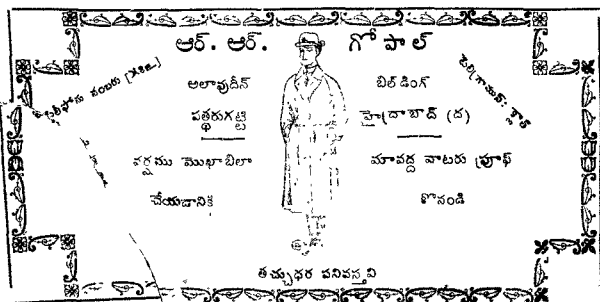 ఆర్. ఆర్. గోపాల్
టెలిఫోను నంబరు
టెలిగ్రామ్స్:
అలావుదీన్ బిల్డింగ్
పత్థరుగట్టి హైద్రాబాద్ (ద)
వర్షము మొఖాబిలా మావద్ద వాటరు ప్రూఫ్
చేయడానికి కొనండి
తచ్చుధర పనివస్తని